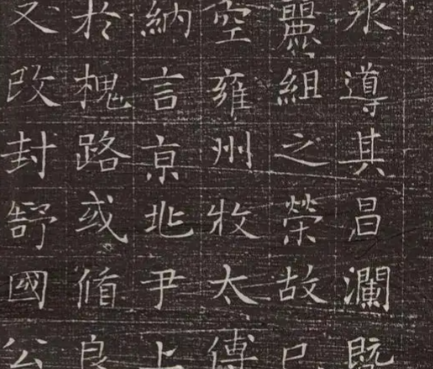 導其昌瀾暨
組之榮故已
空雍州牧太傅
納言京兆尹上
於槐路或脩良
改封舒國公